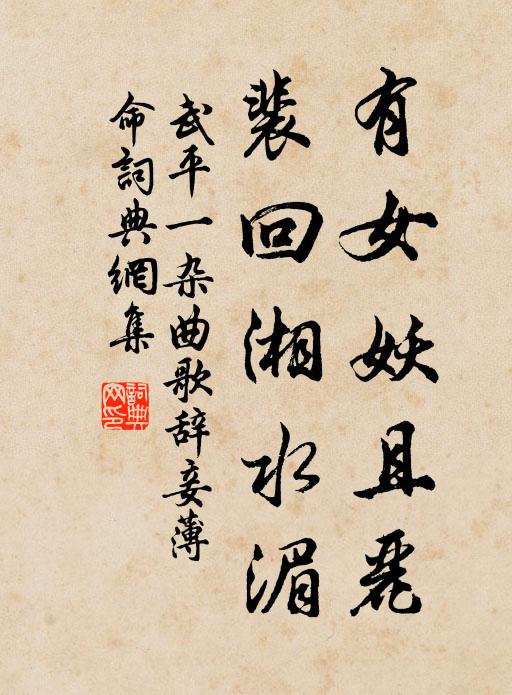 有女妖且麗
裴回湘水湄
武平一杂曲歌辞妾薄
命詞典網集
詞典
网印